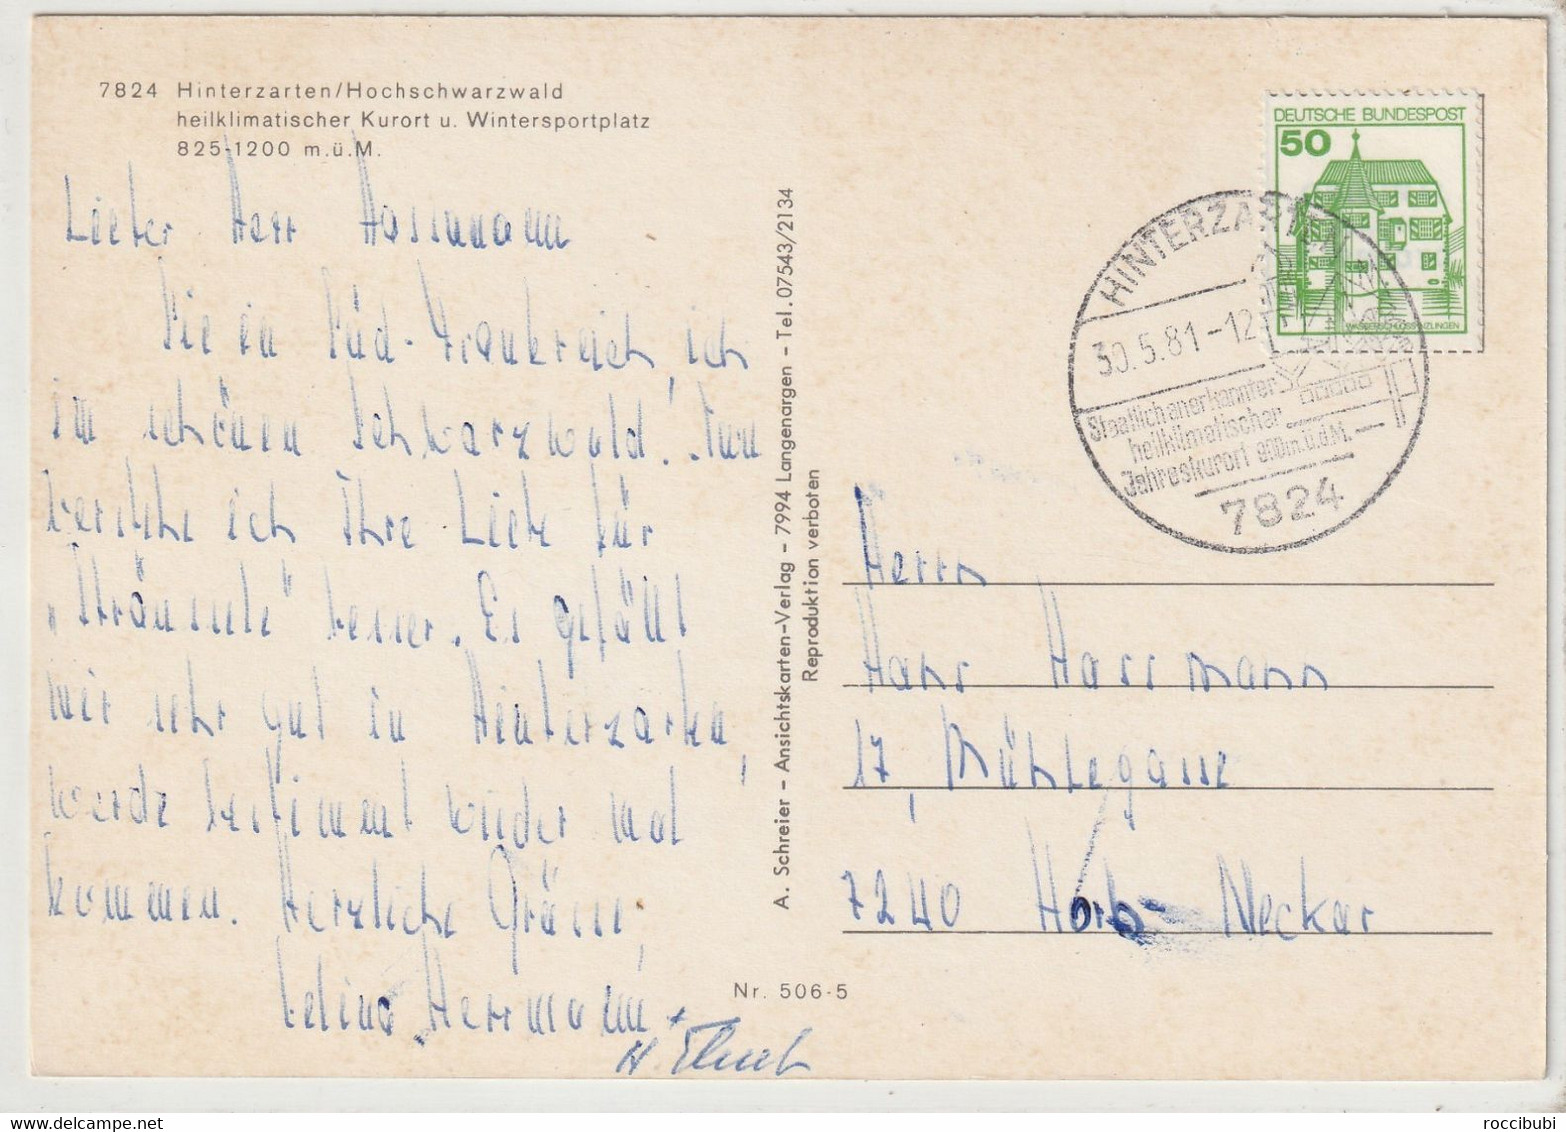 7824 Hinterzarten/Hochschwarzwald
heilklimatischer Kurort u. Wintersportplatz
825-1200 m.ü.M.
Lieber Herr Hassmann
Sie in Süd-Frankreich, ich
im schönen Schwarzwald. Nun
verstehe ich Ihre Liebe für
„Sträussle" besser. Es gefällt
mir sehr gut in Hinterzarten,
werde bestimmt wieder mal
kommen. Herzliche Grüsse,
Herrmann +
H.
A. Schreier - Ansichtskarten-Verlag - 7994 Langenargen - Tel. 07543/2134
Reproduktion verboten
Nr. 506-5
DEUTSCHE BUNDESPOST
50
WASSERSCHLOSS INZLINGEN
HINTERZARTEN
30.5.81-12
Staatlich anerkannter
heilklimatischer
Jahreskurort 900m.ü.d.M.
7824
Herrn
Hans Hassmann
17, Mühlegasse
7240 Horb-Neckar
roccibubi